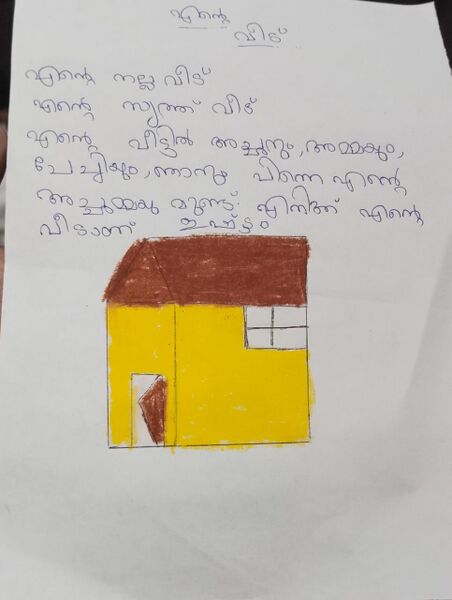 എന്റെ
വീട്
എന്റെ നല്ല വീട്
എന്റെ സ്വത്ത് വീട്
എന്റെ വീട്ടിൽ അച്ഛനും, അമ്മയും,
ചേച്ചിയും, ഞാനും പിന്നെ എന്റെ
അച്ചമ്മയു മുണ്ട്. എനിക്ക് എന്റെ
വീടാണ് ഇഷ്ട്ടം